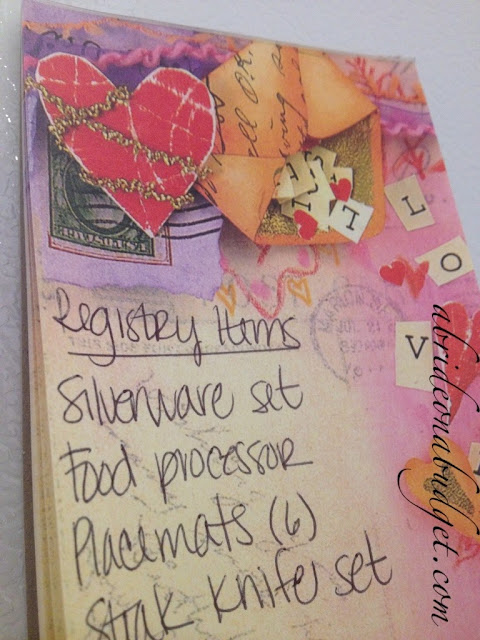 L
O
V
Registry Items
Silverware set
Food processor
Placemats (6)
Steak knife set
abrideonabudget.com